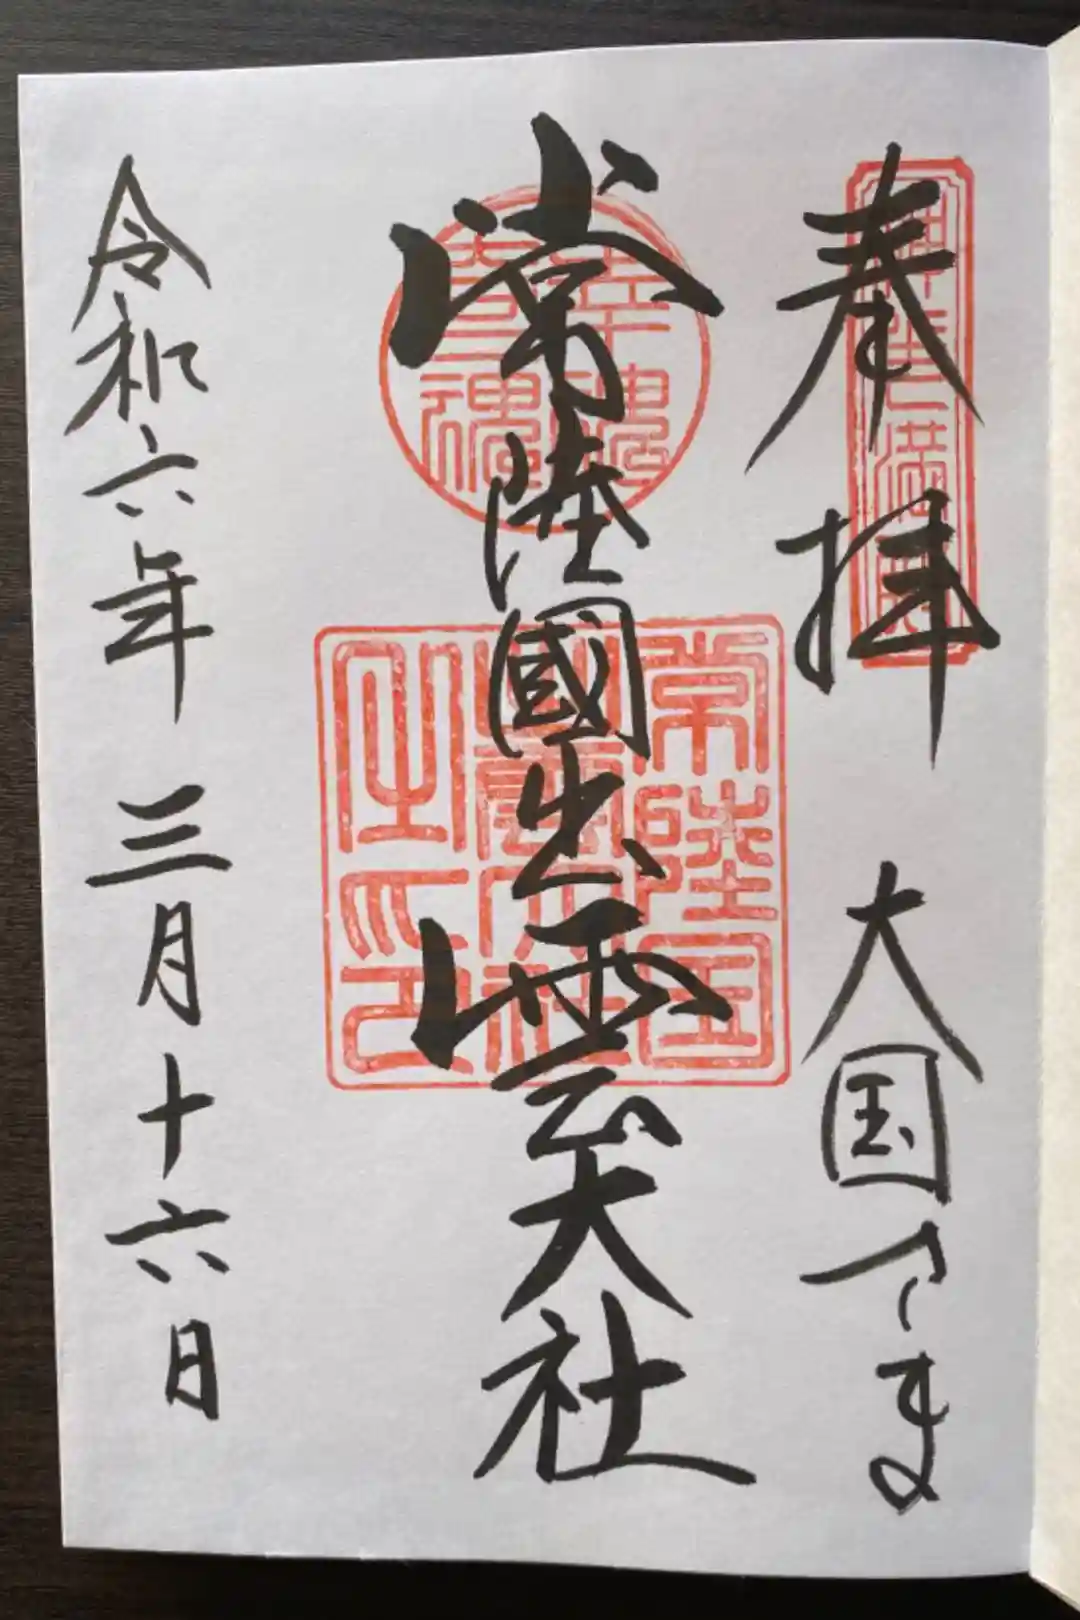 奉拝 大国さま
常陸國出雲大社
常陸国
出雲大社
之印
幸魂
奇魂
令和六年 三月十六日